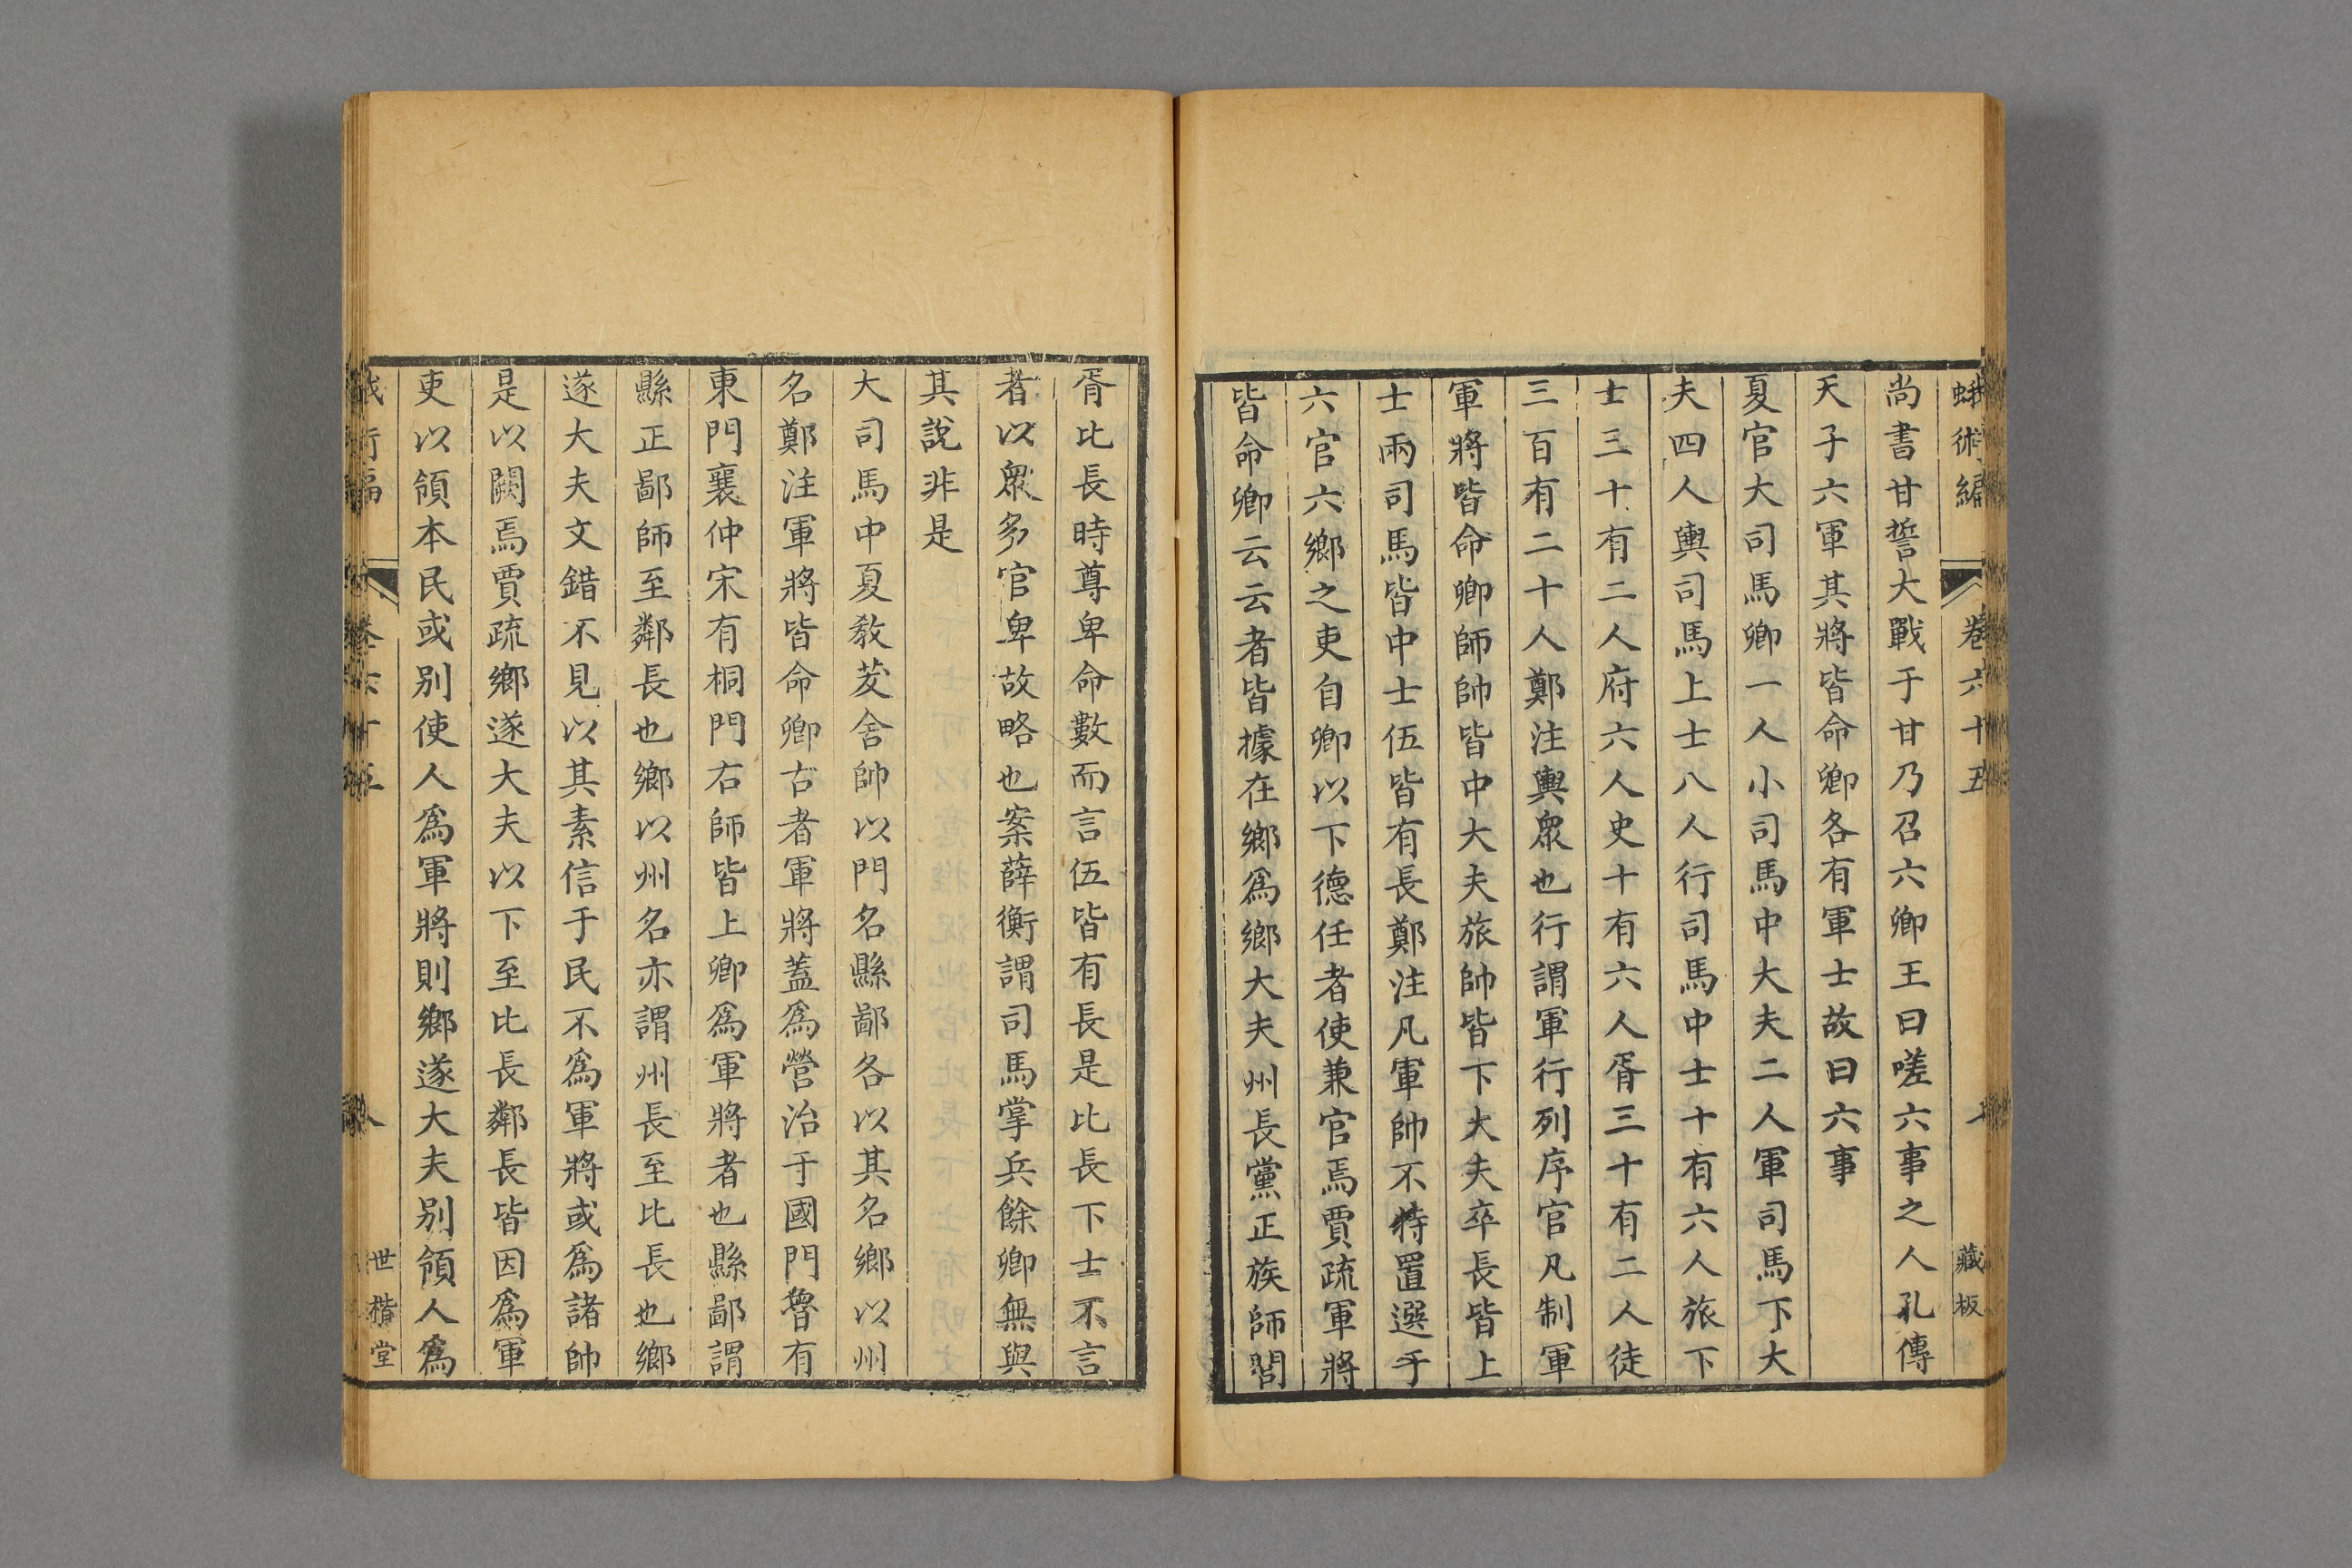 蛾術編 卷六十五 藏板
尚書甘誓大戰于甘乃召六卿王曰嗟六事之人孔傳
天子六軍其將皆命卿各有軍士故曰六事
夏官大司馬卿一人小司馬中大夫二人軍司馬下大
夫四人輿司馬上士八人行司馬中士十有六人旅下
士三十有二人府六人史十有六人胥三十有二人徒
三百有二十人鄭注輿眾也行謂軍行列序官凡制軍
軍將皆命卿師帥皆中大夫旅帥皆下大夫卒長皆上
士兩司馬皆中士伍皆有長鄭注凡軍帥不特置選于
六官六鄉之吏自卿以下德任者使兼官焉賈疏軍將
皆命卿云云者皆據在鄉爲鄉大夫州長黨正族師閭
胥比長時尊卑命數而言伍皆有長是比長下士不言
者以眾多官卑故略也案薛衡謂司馬掌兵餘卿無與
其說非是
大司馬中夏敎茇舍帥以門名縣鄙各以其名鄉以州
名鄭注軍將皆命卿古者軍將蓋爲營治于國門魯有
東門襄仲宋有桐門右師皆上卿爲軍將者也縣鄙謂
縣正鄙師至鄰長也鄉以州名亦謂州長至比長也鄉
遂大夫文錯不見以其素信于民不爲軍將或爲諸帥
是以闕焉賈疏鄉遂大夫以下至比長鄰長皆因爲軍
吏以領本民或别使人爲軍將則鄉遂大夫别領人爲
世楷堂